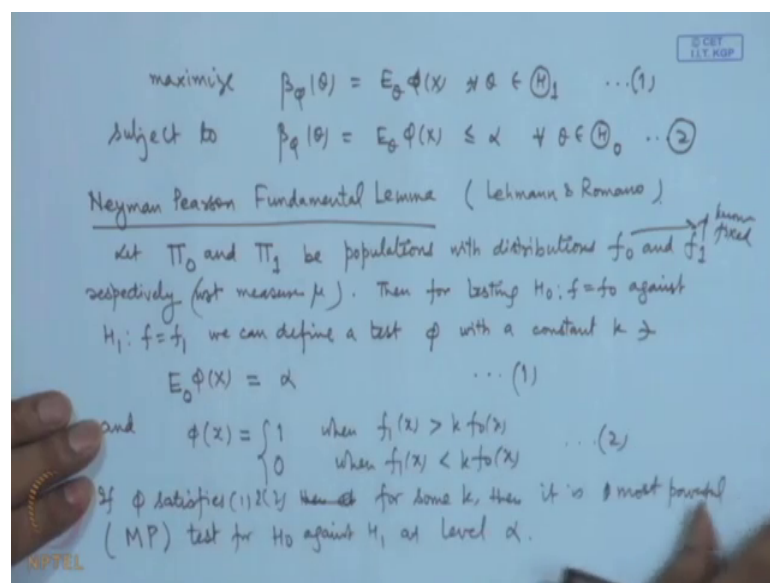 © CET
I.I.T. KGP
maximize β_φ(θ) = E_θ φ(x) ∀ θ ∈ Ⓗ_1 ...(1)
subject to β_φ(θ) = E_θ φ(x) ≤ α ∀ θ ∈ Ⓗ_0 ...(2)
Neyman Pearson Fundamental Lemma (Lehmann & Romano)
known
fixed
Let Π_0 and Π_1 be populations with distributions f_0 and f_1
respectively (wrt measure μ). Then for testing H_0: f = f_0 against
H_1: f = f_1 we can define a test φ with a constant k ∋
E_0 φ(X) = α ...(1)
and φ(x) = { 1 when f_1(x) > k f_0(x)
0 when f_1(x) < k f_0(x) ...(2)
If φ satisfies (1) & (2) for some k, then it is most powerful
(MP) test for H_0 against H_1 at level α.
NPTEL